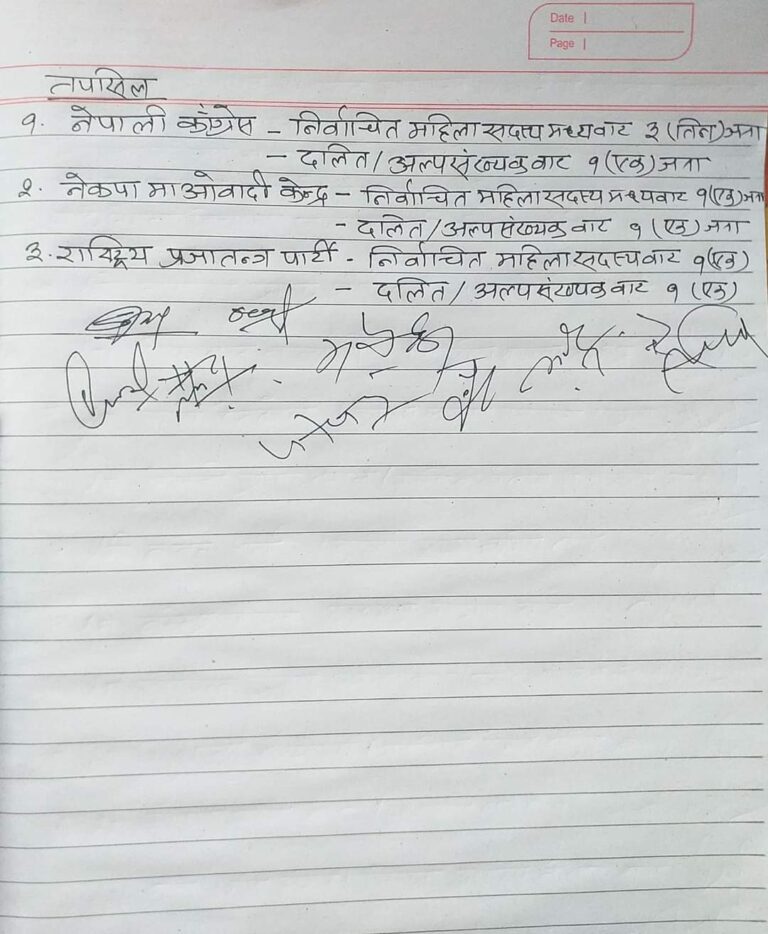 Date |
Page |
तपसिल
१. नेपाली काँग्रेस - निर्वाचित महिला सदस्य मध्यवाट ३ (तिन) जना
- दलित/अल्पसंख्यक वाट १ (एक) जना
२. नेकपा माओवादी केन्द्र - निर्वाचित महिला सदस्य मध्यवाट १ (एक) जना
- दलित/अल्पसंख्यक वाट १ (एक) जना
३. राष्ट्रिय प्रजातन्त्र पार्टी - निर्वाचित महिला सदस्यवाट १ (एक)
- दलित/अल्पसंख्यक वाट १ (एक)